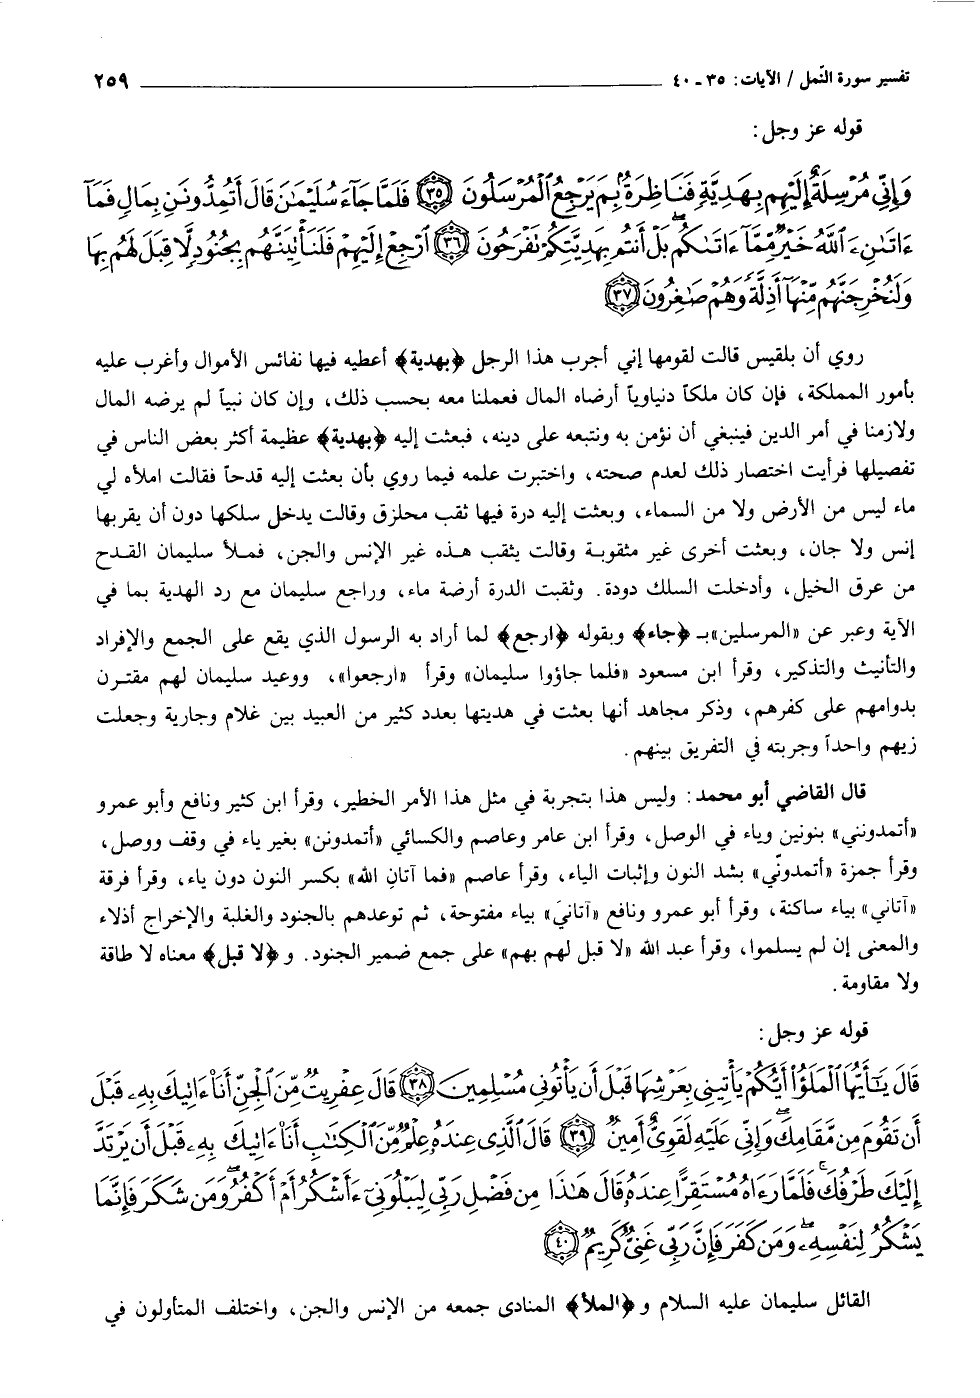 تفسير سورة النّمل / الآيات: ٣٥ - ٤٠ ٢٥٩
قوله عز وجل:
وَإِنِّي مُرْسِلَةٌ إِلَيْهِم بِهَدِيَّةٍ فَنَاظِرَةٌۢ بِمَ يَرْجِعُ ٱلْمُرْسَلُونَ ﴿٣٥﴾ فَلَمَّا جَآءَ سُلَيْمَٰنَ قَالَ أَتُمِدُّونَنِ بِمَالٍ فَمَآ
ءَاتَىٰنِۦَ ٱللَّهُ خَيْرٌ مِّمَّآ ءَاتَىٰكُم بَلْ أَنتُم بِهَدِيَّتِكُمْ تَفْرَحُونَ ﴿٣٦﴾ ٱرْجِعْ إِلَيْهِمْ فَلَنَأْتِيَنَّهُم بِجُنُودٍ لَّا قِبَلَ لَهُم بِهَا
وَلَنُخْرِجَنَّهُم مِّنْهَآ أَذِلَّةً وَهُمْ صَٰغِرُونَ ﴿٣٧﴾
روي أن بلقيس قالت لقومها إني أجرب هذا الرجل ﴿بهدية﴾ أعطيه فيها نفائس الأموال وأغرب عليه
بأمور المملكة، فإن كان ملكاً دنياوياً أرضاه المال فعملنا معه بحسب ذلك، وإن كان نبياً لم يرضه المال
ولازمنا في أمر الدين فينبغي أن نؤمن به ونتبعه على دينه، فبعثت إليه ﴿بهدية﴾ عظيمة أكثر بعض الناس في
تفصيلها فرأيت اختصار ذلك لعدم صحته، واختبرت علمه فيما روي بأن بعثت إليه قدحاً فقالت املأه لي
ماء ليس من الأرض ولا من السماء، وبعثت إليه درة فيها ثقب محلزق وقالت يدخل سلكها دون أن يقربها
إنس ولا جان، وبعثت أخرى غير مثقوبة وقالت يثقب هذه غير الإنس والجن، فملأ سليمان القدح
من عرق الخيل، وأدخلت السلك دودة. وثقبت الدرة أرضة ماء، وراجع سليمان مع رد الهدية بما في
الآية وعبر عن «المرسلين» بـ ﴿جاء﴾ وبقوله ﴿ارجع﴾ لما أراد به الرسول الذي يقع على الجمع والإفراد
والتأنيث والتذكير، وقرأ ابن مسعود «فلما جاؤوا سليمان» وقرأ «ارجعوا»، ووعيد سليمان لهم مقترن
بدوامهم على كفرهم، وذكر مجاهد أنها بعثت في هديتها بعدد كثير من العبيد بين غلام وجارية وجعلت
زيهم واحداً وجربته في التفريق بينهم.
قال القاضي أبو محمد: وليس هذا بتجربة في مثل هذا الأمر الخطير، وقرأ ابن كثير ونافع وأبو عمرو
«أتمدونني» بنونين وياء في الوصل، وقرأ ابن عامر وعاصم والكسائي «أتمدونن» بغير ياء في وقف ووصل،
وقرأ جمزة «أتمدونّي» بشد النون وإثبات الياء، وقرأ عاصم «فما آتانِ الله» بكسر النون دون ياء، وقرأ فرقة
«آتاني» بياء ساكنة، وقرأ أبو عمرو ونافع «آتانيَ» بياء مفتوحة، ثم توعدهم بالجنود والغلبة والإخراج أذلاء
والمعنى إن لم يسلموا، وقرأ عبد الله «لا قبل لهم بهم» على جمع ضمير الجنود. و ﴿لا قبل﴾ معناه لا طاقة
ولا مقاومة.
قوله عز وجل:
قَالَ يَٰٓأَيُّهَا ٱلْمَلَؤُا۟ أَيُّكُمْ يَأْتِينِى بِعَرْشِهَا قَبْلَ أَن يَأْتُونِى مُسْلِمِينَ ﴿٣٨﴾ قَالَ عِفْرِيتٌ مِّنَ ٱلْجِنِّ أَنَا۠ ءَاتِيكَ بِهِۦ قَبْلَ
أَن تَقُومَ مِن مَّقَامِكَ وَإِنِّى عَلَيْهِ لَقَوِىٌّ أَمِينٌ ﴿٣٩﴾ قَالَ ٱلَّذِى عِندَهُۥ عِلْمٌ مِّنَ ٱلْكِتَٰبِ أَنَا۠ ءَاتِيكَ بِهِۦ قَبْلَ أَن يَرْتَدَّ
إِلَيْكَ طَرْفُكَ فَلَمَّا رَءَاهُ مُسْتَقِرًّا عِندَهُۥ قَالَ هَٰذَا مِن فَضْلِ رَبِّى لِيَبْلُوَنِىٓ ءَأَشْكُرُ أَمْ أَكْفُرُ وَمَن شَكَرَ فَإِنَّمَا
يَشْكُرُ لِنَفْسِهِۦ وَمَن كَفَرَ فَإِنَّ رَبِّى غَنِىٌّ كَرِيمٌ ﴿٤٠﴾
القائل سليمان عليه السلام و ﴿الملأ﴾ المنادى جمعه من الإنس والجن، واختلف المتأولون في